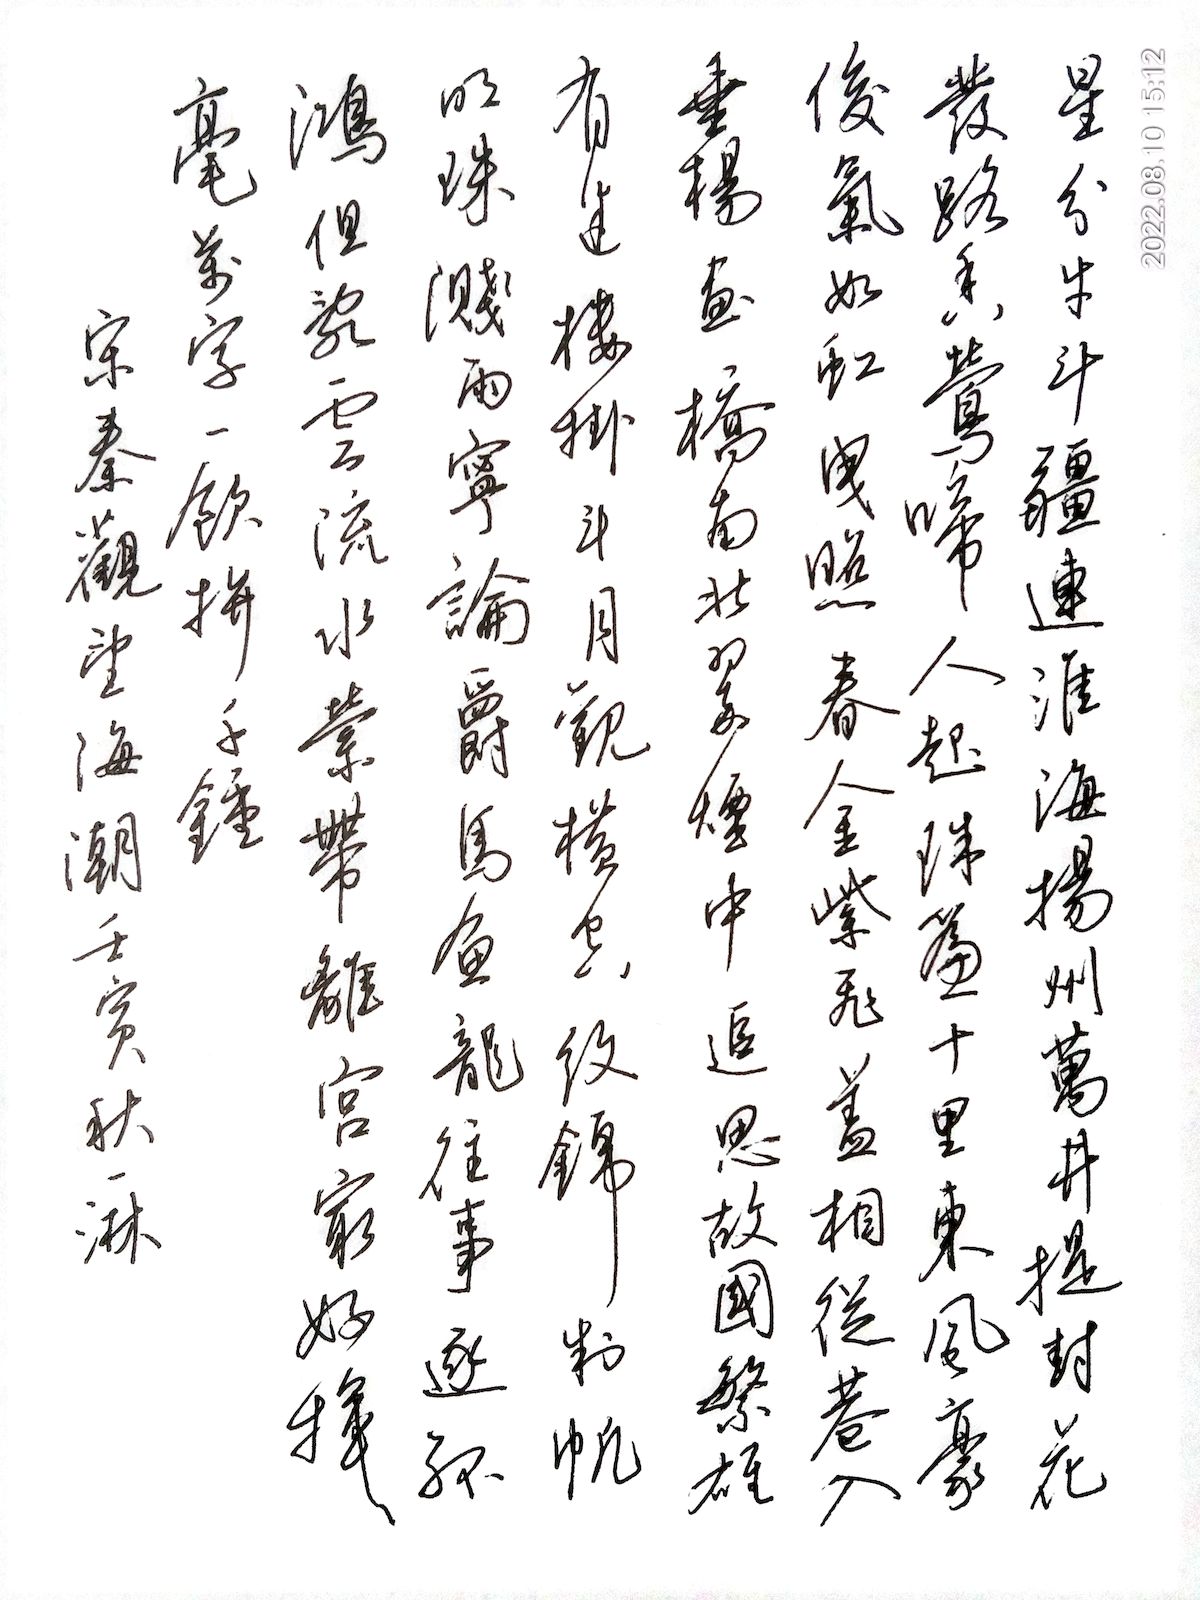 星分牛斗疆連淮海揚州萬井提封花
發路香鶯啼人起珠簾十里東風豪
俊氣如虹曳照春金紫飛蓋相從巷入
垂楊畫橋南北翠煙中追思故國繁雄
有迷樓掛斗月觀橫空紋錦制帆
明珠濺雨寧論爵馬魚龍往事逐孤
鴻但亂雲流水縈帶離宮最好揮
毫萬字一飲拚千鍾
宋秦觀望海潮壬寅秋一淋
2022.08.10 15:12